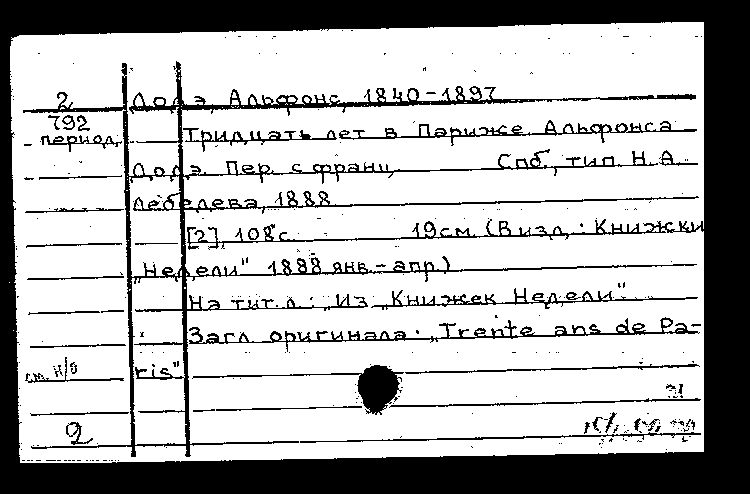 2 Додэ, Альфонс, 1840-1897
792
период. Тридцать лет в Париже Альфонса
Додэ. Пер. с франц. Спб., тип. Н. А.
Лебедева, 1888
[2], 108 с. 19 см. (В изд.: Книжки
„Недели" 1888 янв.-апр.)
На тит. л.: „Из „Книжек Недели".
Загл. оригинала: „Trente ans de Pa-
см. н/о ris"
2